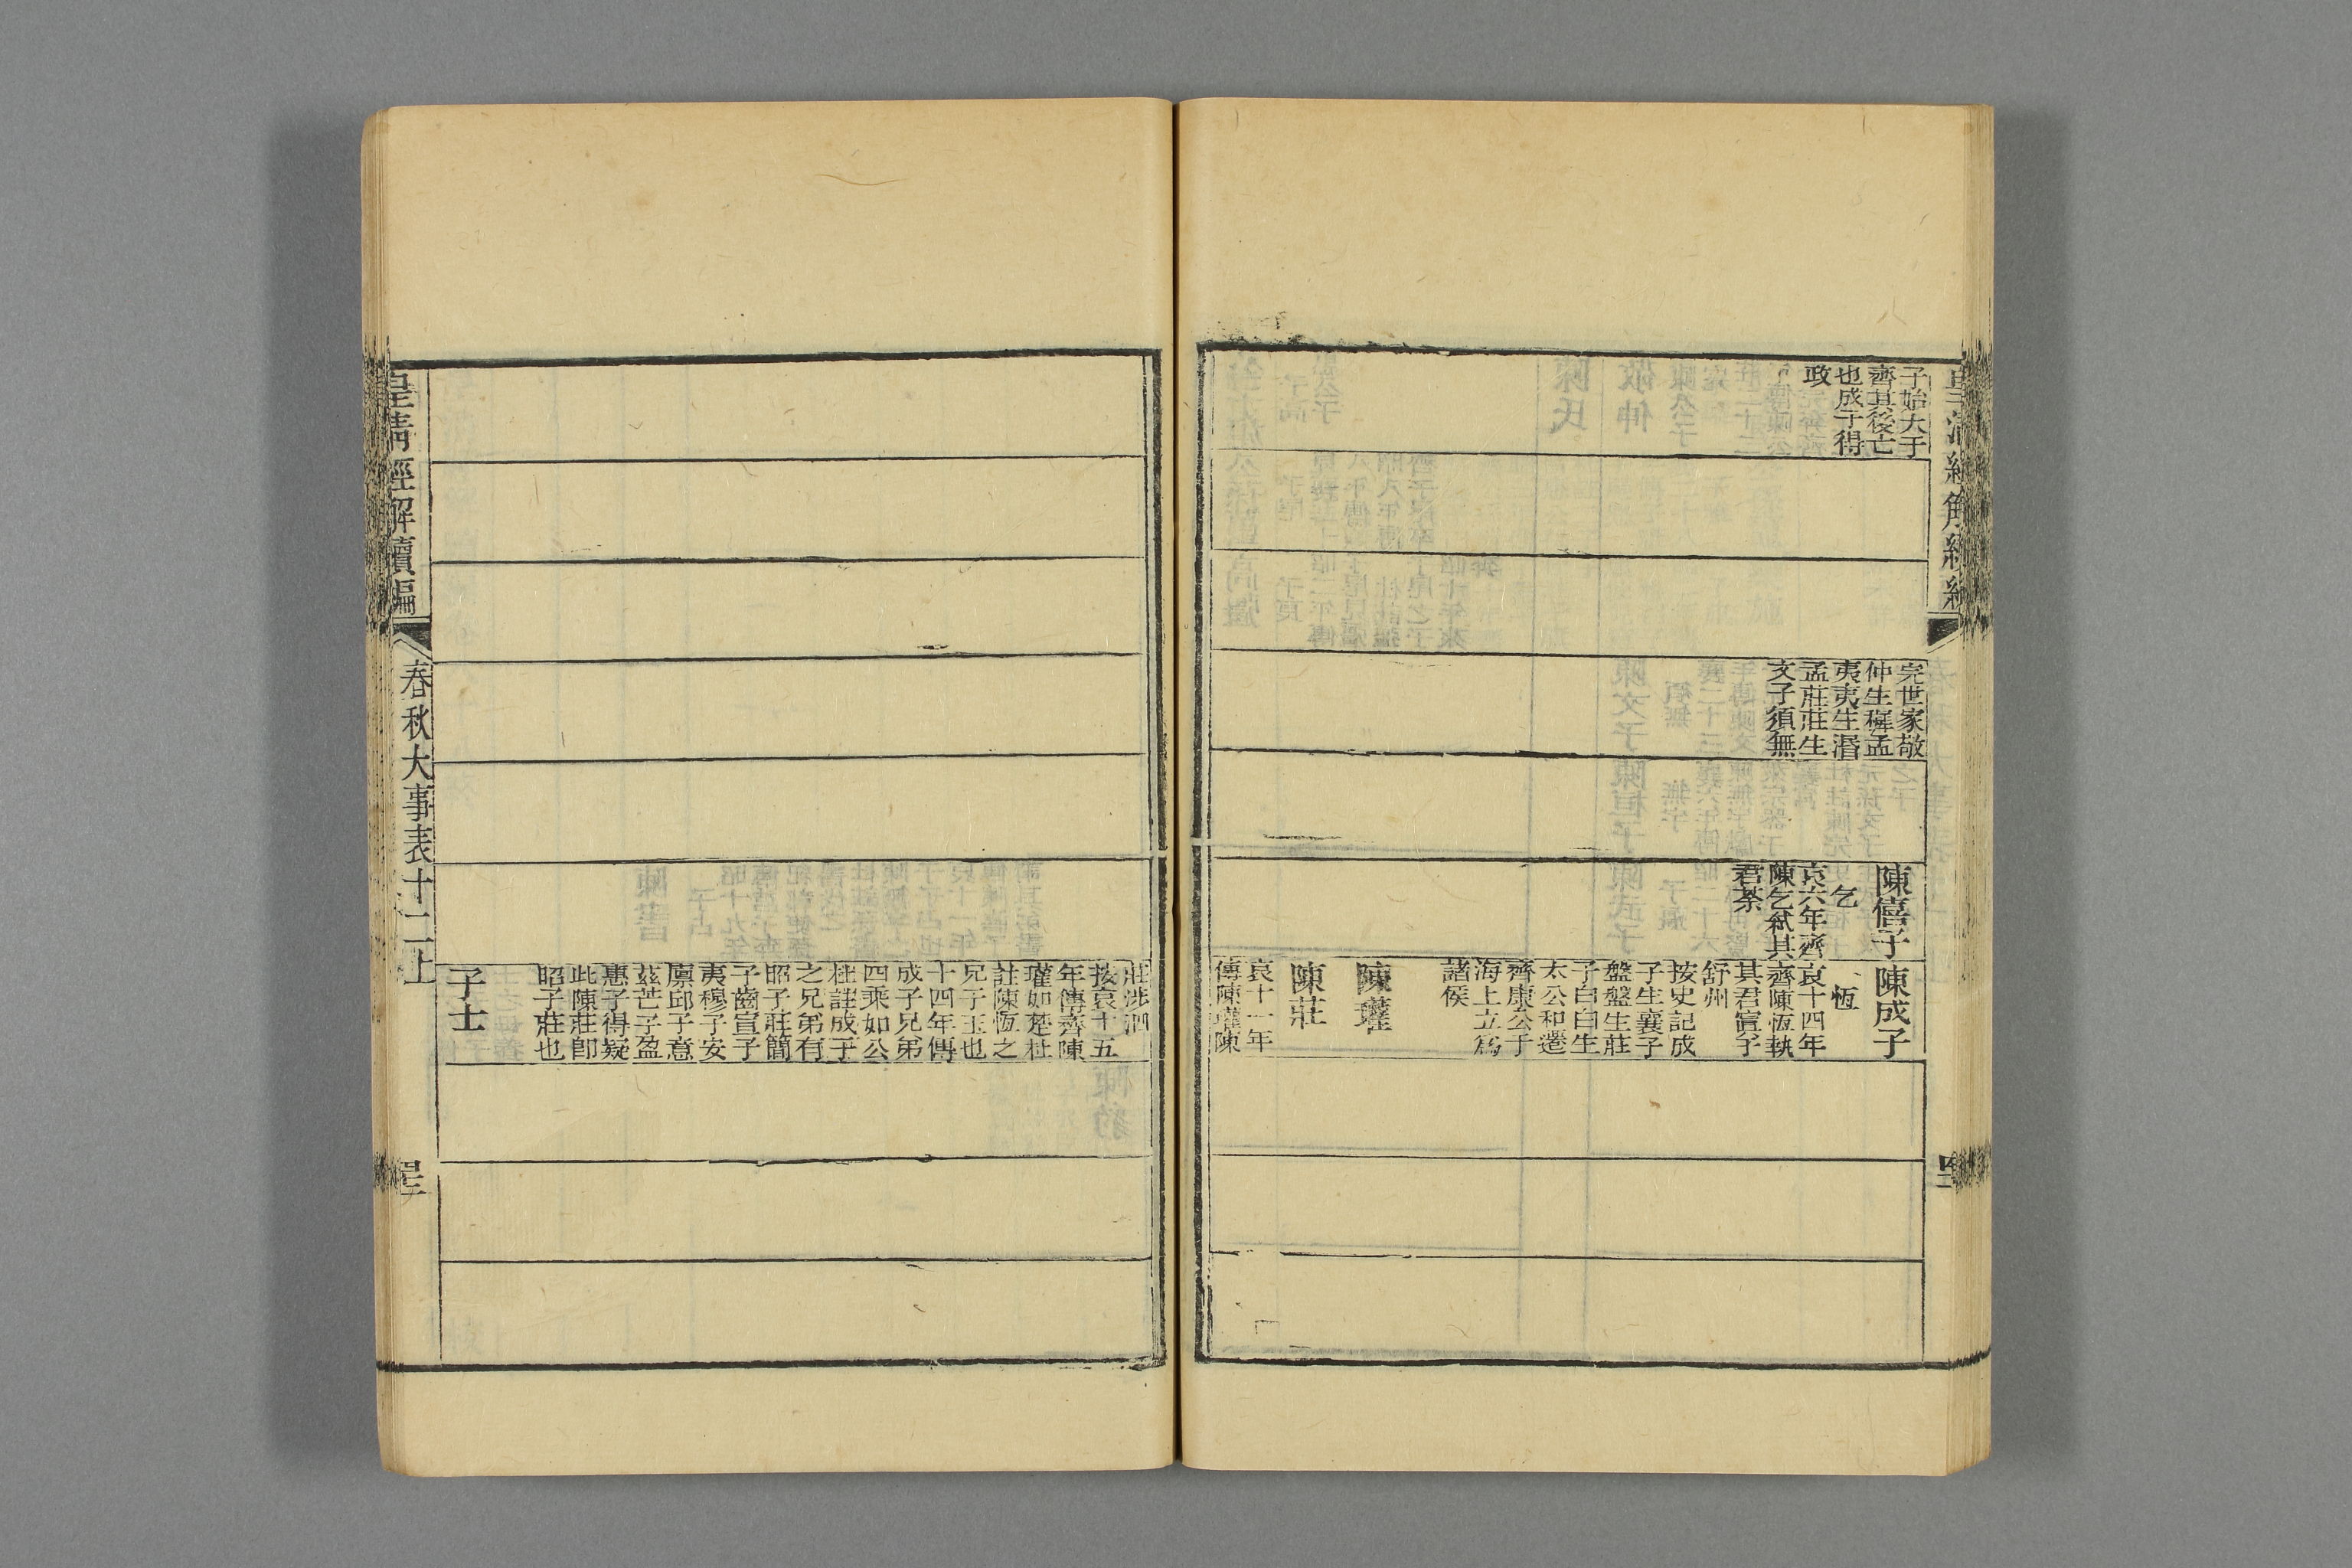 子始大于
齊其後亡
也成子得
政
完世家敬
仲生穉孟
夷夷生湣
孟莊莊生
文子須無
陳僖子
乞
哀六年齊
陳乞弒其
君荼
陳成子
恆
哀十四年
齊陳恆執
其君寘于
舒州
按史記成
子生襄子
盤盤生莊
子白白生
太公和遷
齊康公于
海上立爲
諸侯
陳瓘
陳莊
哀十一年
傳陳瓘陳
莊涉泗
按哀十五
年傳齊陳
瓘如楚杜
註陳恆之
兄子玉也
十四年傳
成子兄弟
四乘如公
杜註成子
之兄弟有
昭子莊簡
子齒宣子
夷穆子安
廪邱子意
茲芒子盈
惠子得疑
此陳莊卽
昭子莊也
子士
皇清經解續編
春秋大事表十二上